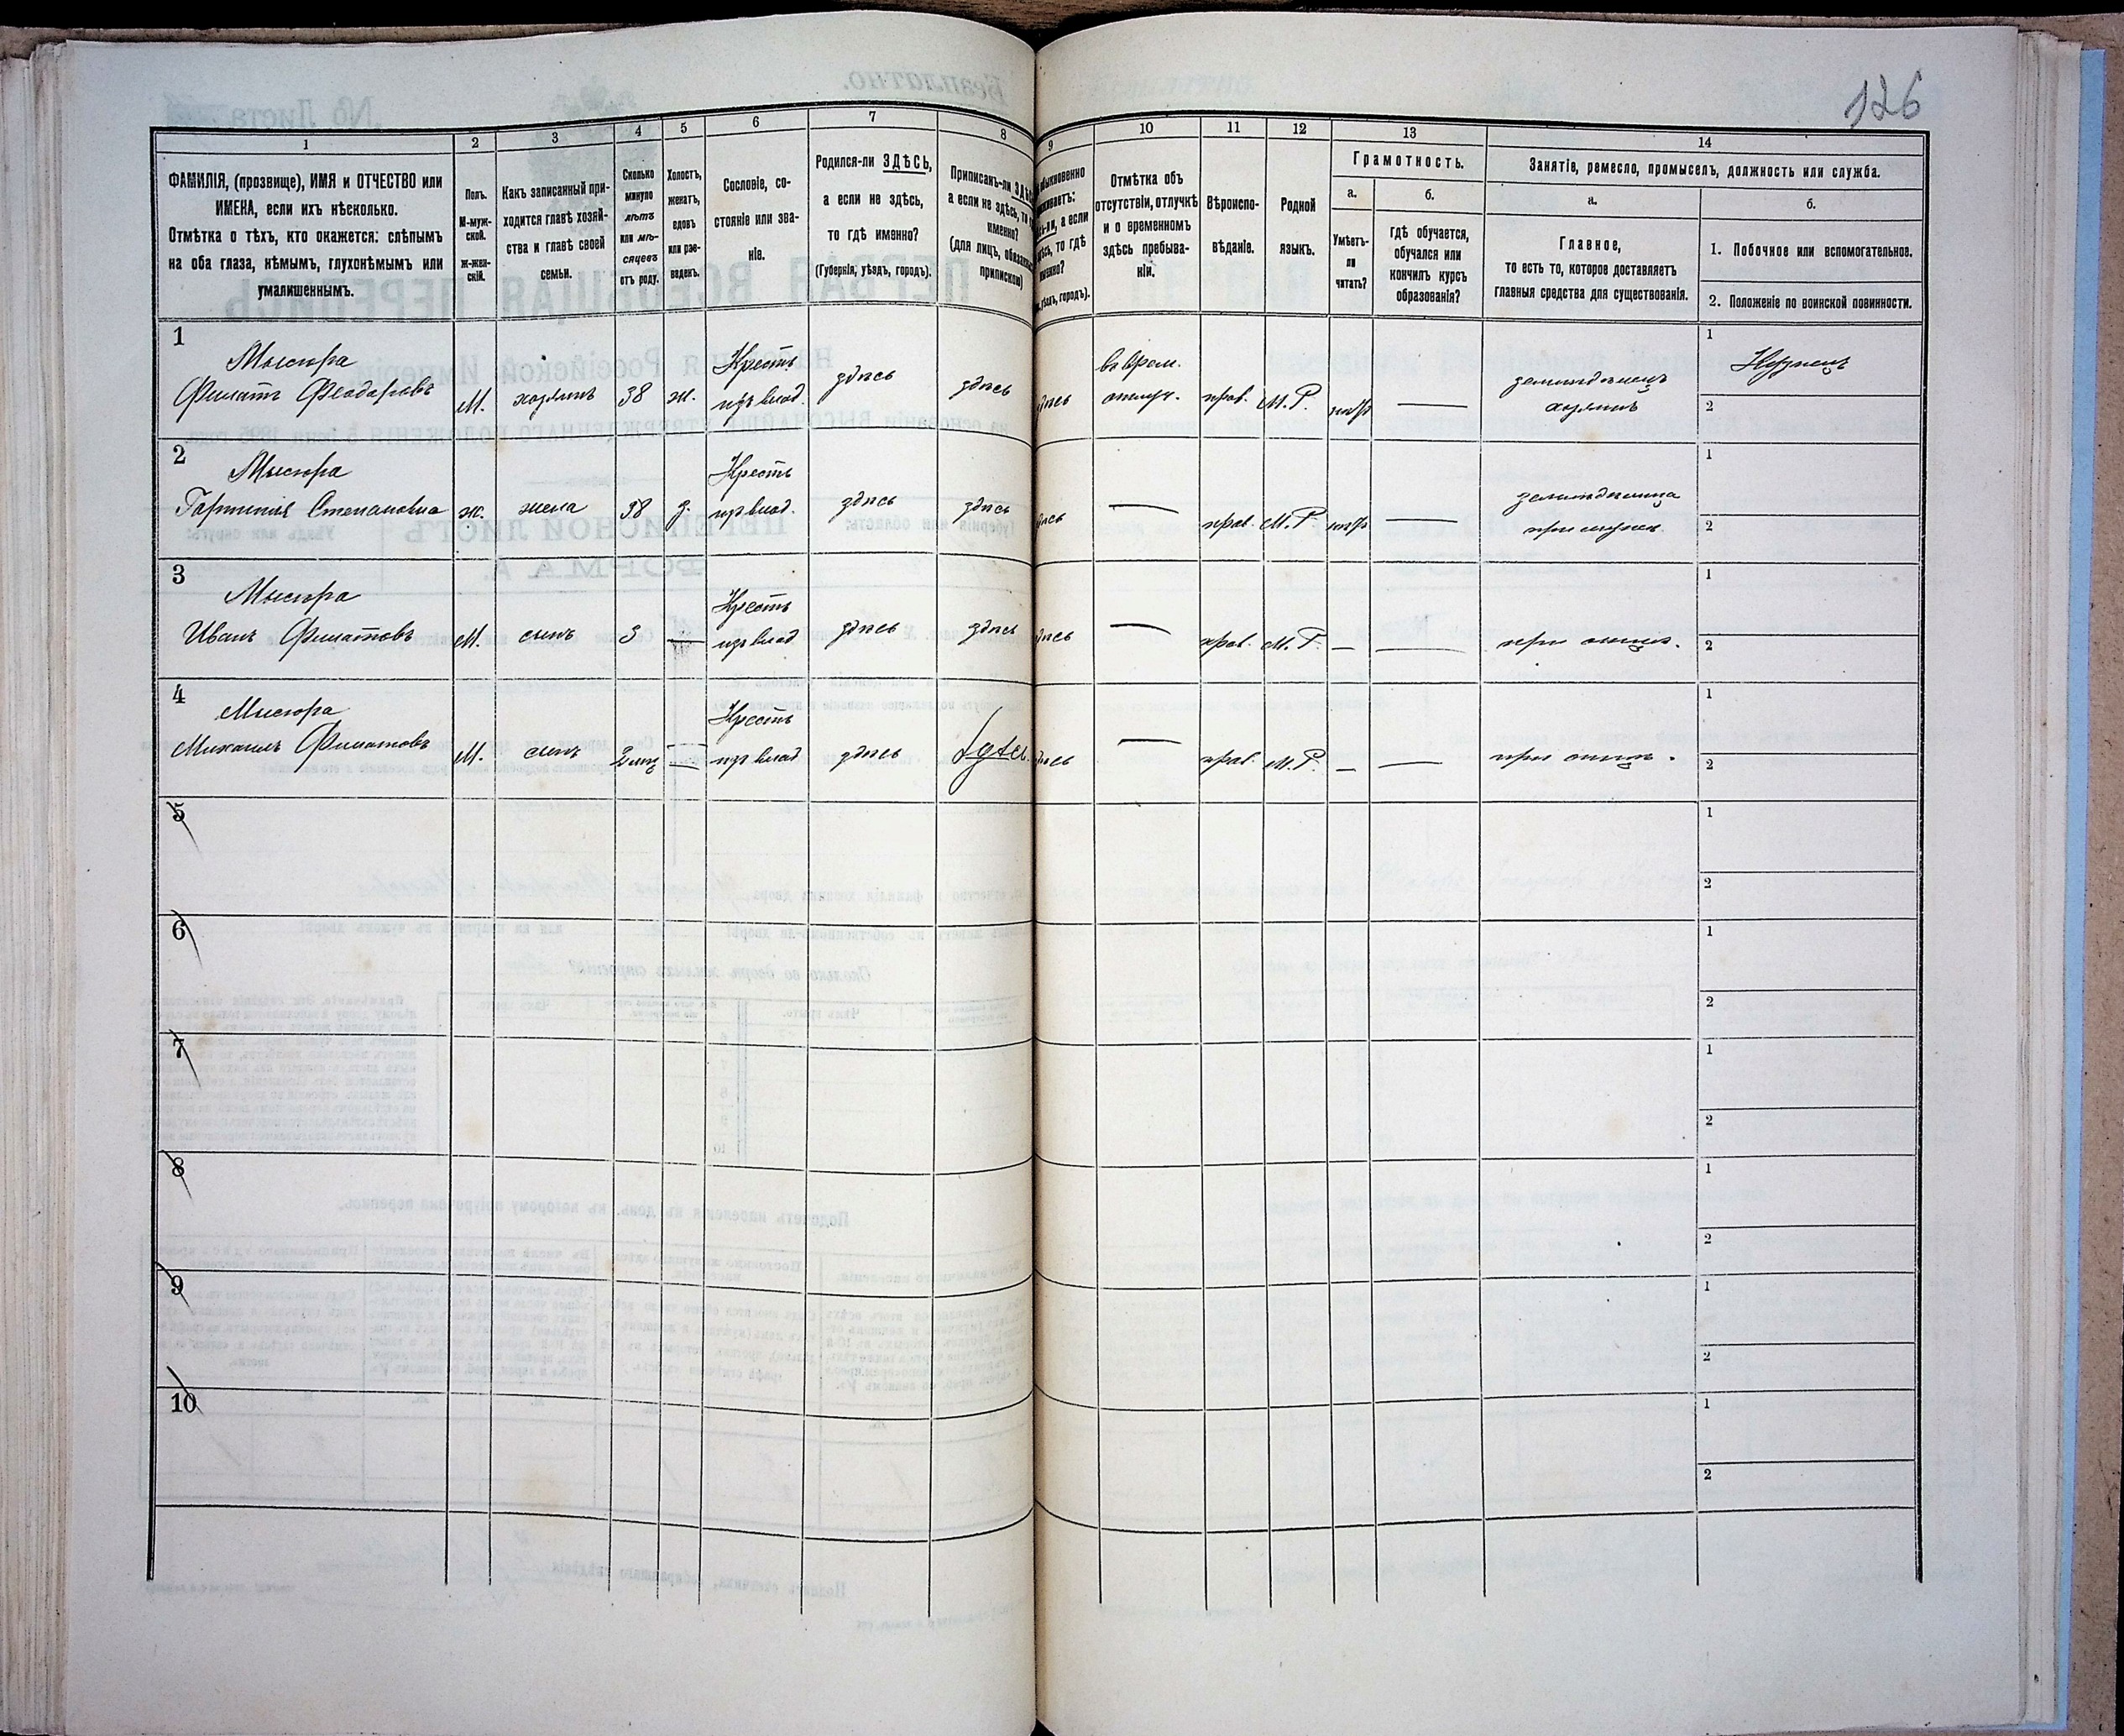 126
1
2
3
4
5
6
7
8
9
10
11
12
13
14
ФАМИЛІЯ, (прозвище), ИМЯ и ОТЧЕСТВО или
ИМЕНА, если ихъ нѣсколько.
Отмѣтка о тѣхъ, кто окажется: слѣпымъ
на оба глаза, нѣмымъ, глухонѣмымъ или
умалишеннымъ.
Полъ.
М-муж-
ской.
Ж-жен-
скій.
Какъ записанный при-
ходится главѣ хозяй-
ства и главѣ своей
семьи.
Сколько
минуло
лѣтъ
или мѣ-
сяцевъ
отъ роду.
Холостъ,
женатъ,
вдовъ
или раз-
веденъ.
Сословіе, со-
стояніе или зва-
ніе.
Родился-ли ЗДѢСЬ,
а если не здѣсь,
то гдѣ именно?
(Губернія, уѣздъ, городъ).
Приписанъ-ли
а если не здѣсь, то
именно?
(для лицъ,
припискою)
обыкновенно
а если
то гдѣ
городъ).
Отмѣтка объ
отсутствіи, отлучкѣ
и о временномъ
здѣсь пребыва-
ніи.
Вѣроиспо-
вѣданіе.
Родной
языкъ.
Грамотность.
а.
Умѣетъ-
ли
читать?
б.
гдѣ обучается,
обучался или
кончилъ курсъ
образованія?
Занятіе, ремесло, промыселъ, должность или служба.
а.
Главное,
то есть то, которое доставляетъ
главныя средства для существованія.
б.
1. Побочное или вспомогательное.
2. Положеніе по воинской повинности.
1
Мысюра
Филатъ Феодоровъ
М. хозяинъ 38 ж.
Крестъ
изъ влад.
здѣсь
здѣсь
въ врем.
отлуч.
прав. М.Р.
земледѣлецъ
хозяинъ
1
Кузнецъ
2
2
Мысюра
Горпина Степановна ж. жена 38 з.
Крестъ
изъ влад.
здѣсь
здѣсь
— прав. М.Р. —
при мужѣ.
1
2
3
Мысюра
Иванъ Филатовъ М. сынъ 3 —
Крестъ
изъ влад
здѣсь
здѣсь
— прав. М.Р. — —
при отцѣ.
1
2
4
Мысюра
Михаилъ Филатовъ М. сынъ —
Крестъ
изъ влад
здѣсь
— прав. М.Р. — —
при отцѣ.
1
2
5
1
2
6
1
2
7
1
2
8
1
2
9
1
2
10
1
2